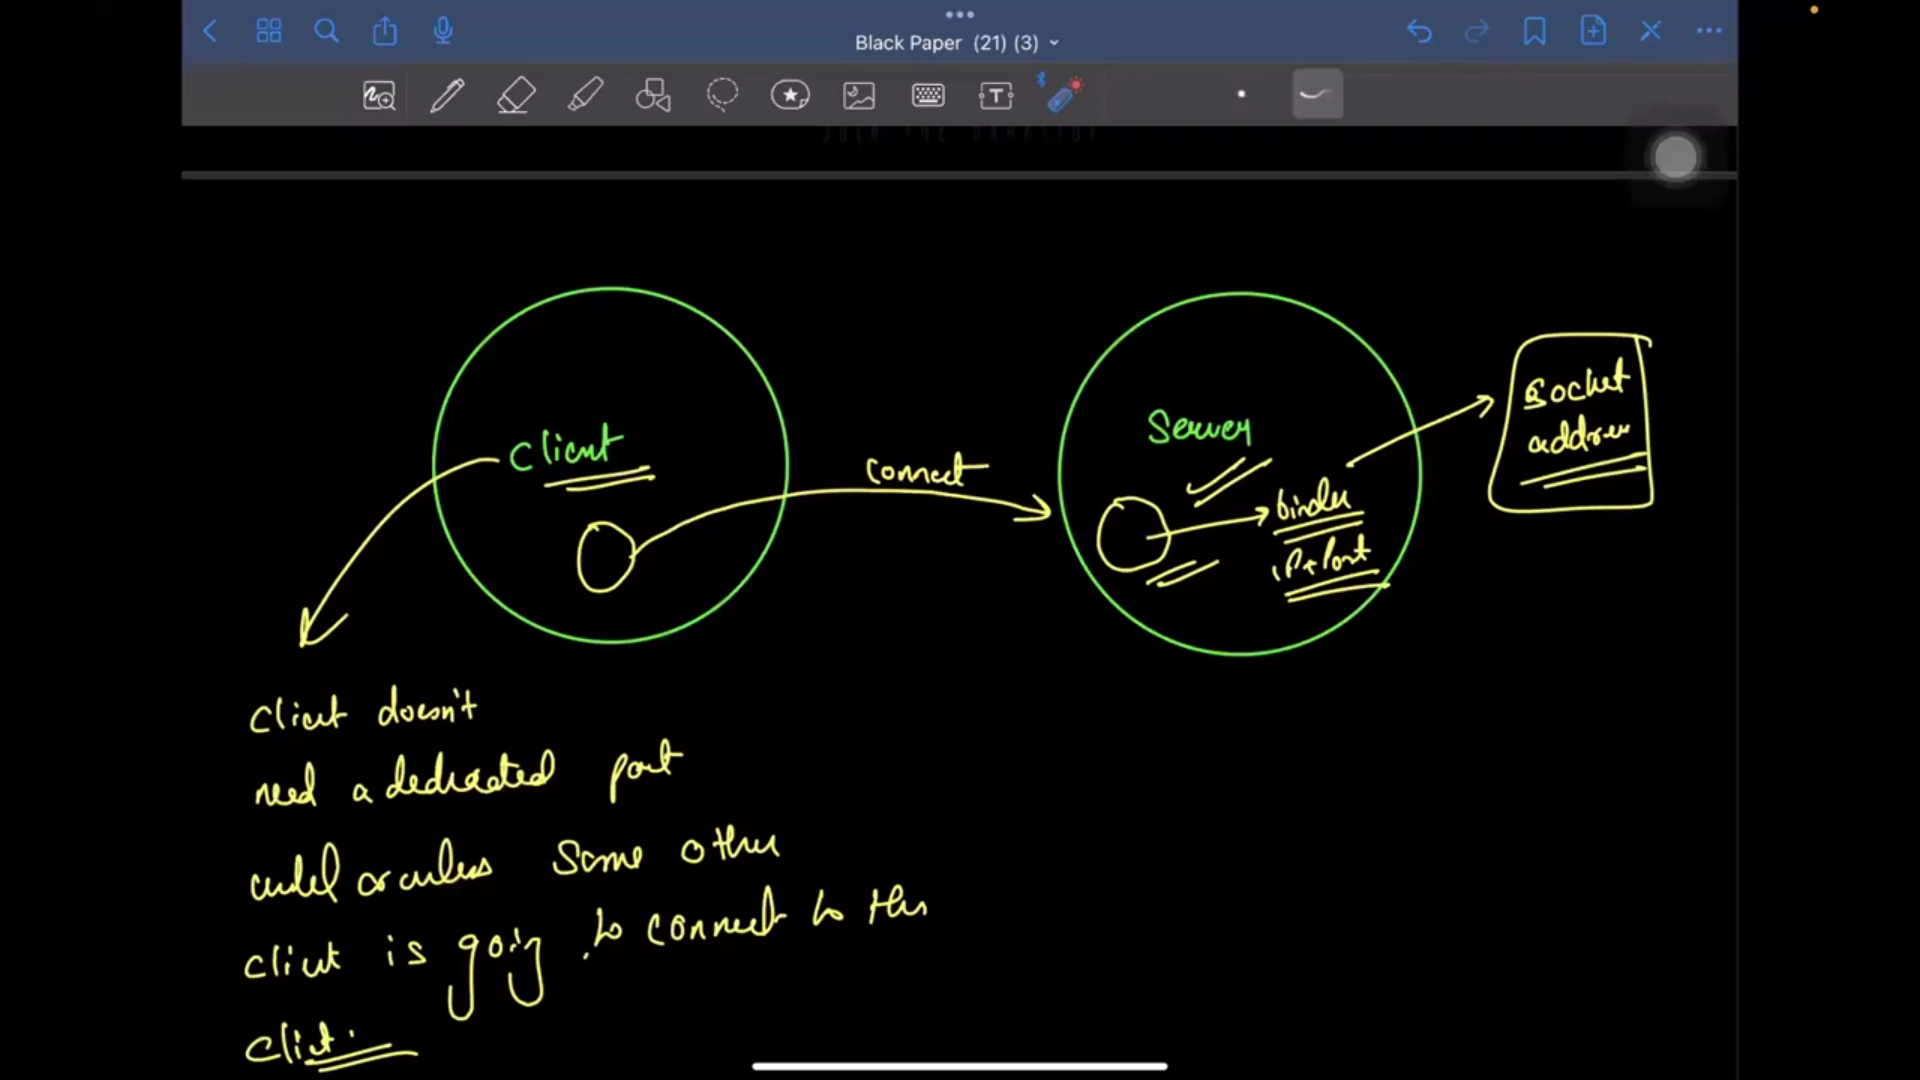 Black Paper (21) (3)
Client
connect
Server
binder
IP+Port
Socket
address
Client doesn't
need a dedicated port
until or unless some other
client is going to connect to this
client.